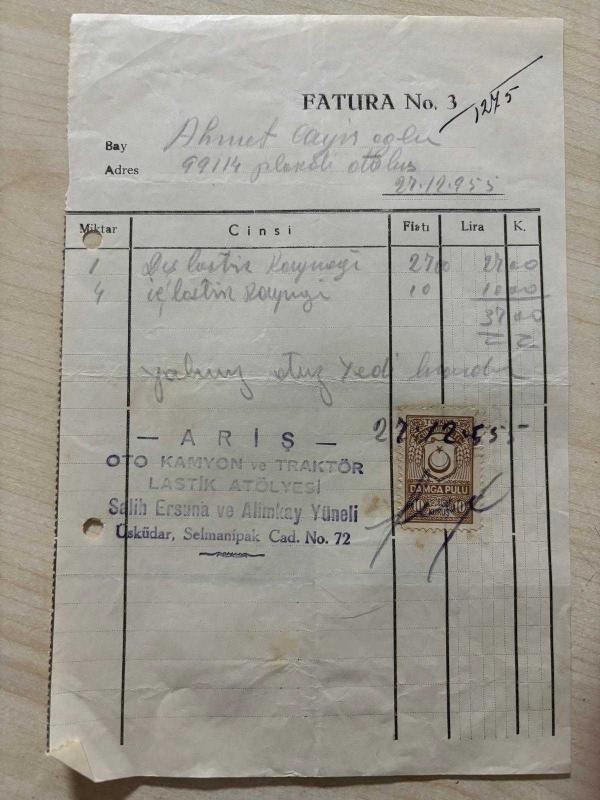 FATURA No. 3 1275
Bay Ahmet
Adres 99114 plakalı otobüs
27.12.955
Miktar Cinsi Fiatı Lira K.
1 Dış lastik kaynağı 2700 2700
4 iç lastik kaynağı 10 1000
3700
yalnız otuz yedi liradır
27.12.955
— ARİŞ —
OTO KAMYON ve TRAKTÖR
LASTİK ATÖLYESİ
Salih Ersuna ve Alimkay Yüneli
Üsküdar, Selmanipak Cad. No. 72
DAMGA PULU
10 10